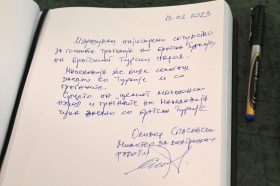 13.02.2023
Изразувам најискрено сочувство
за големата трагедија на братска Турција,
на братскиот Турски народ.
Македонија ќе биде секогаш
заедно со Турција и со
граѓаните.
Срцето на целиот македонски
народ и граѓаните на Македонија
чука заедно со братска Турција.
Оливер Спасовски
Министер за внатрешни
работи